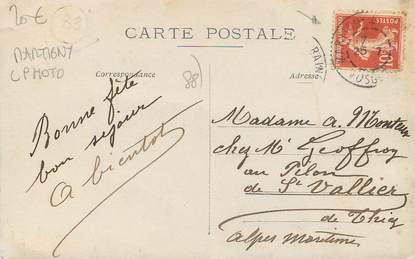 20€
88
MARTIGNY
CPHOTO
CARTE POSTALE
Correspondance
Adresse
88
Bonne fête
bon séjour
A bientot
Madame A. Monteux
chez Mr Geoffroy
au Pilon
de St Vallier
de Thiey
Alpes Maritime
POSTES
10